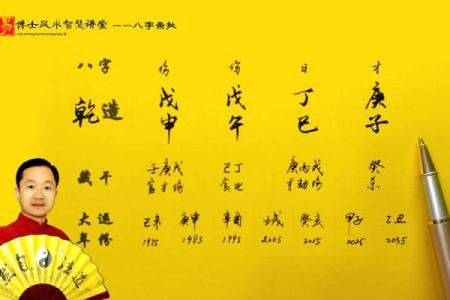 易 博士风水智慧讲堂 ——八字批
八字 伤 伤 日 才
乾造 戊申 戊午 丁巳 庚子
藏干 壬庚戊 己丁 庚丙戊 癸
官才伤 食比 才劫伤 杀
大运 己未 庚申 辛酉 壬戌 癸亥 甲子 乙丑
年 1975 1985 1995 2005 2015 2025 2035
然自法道